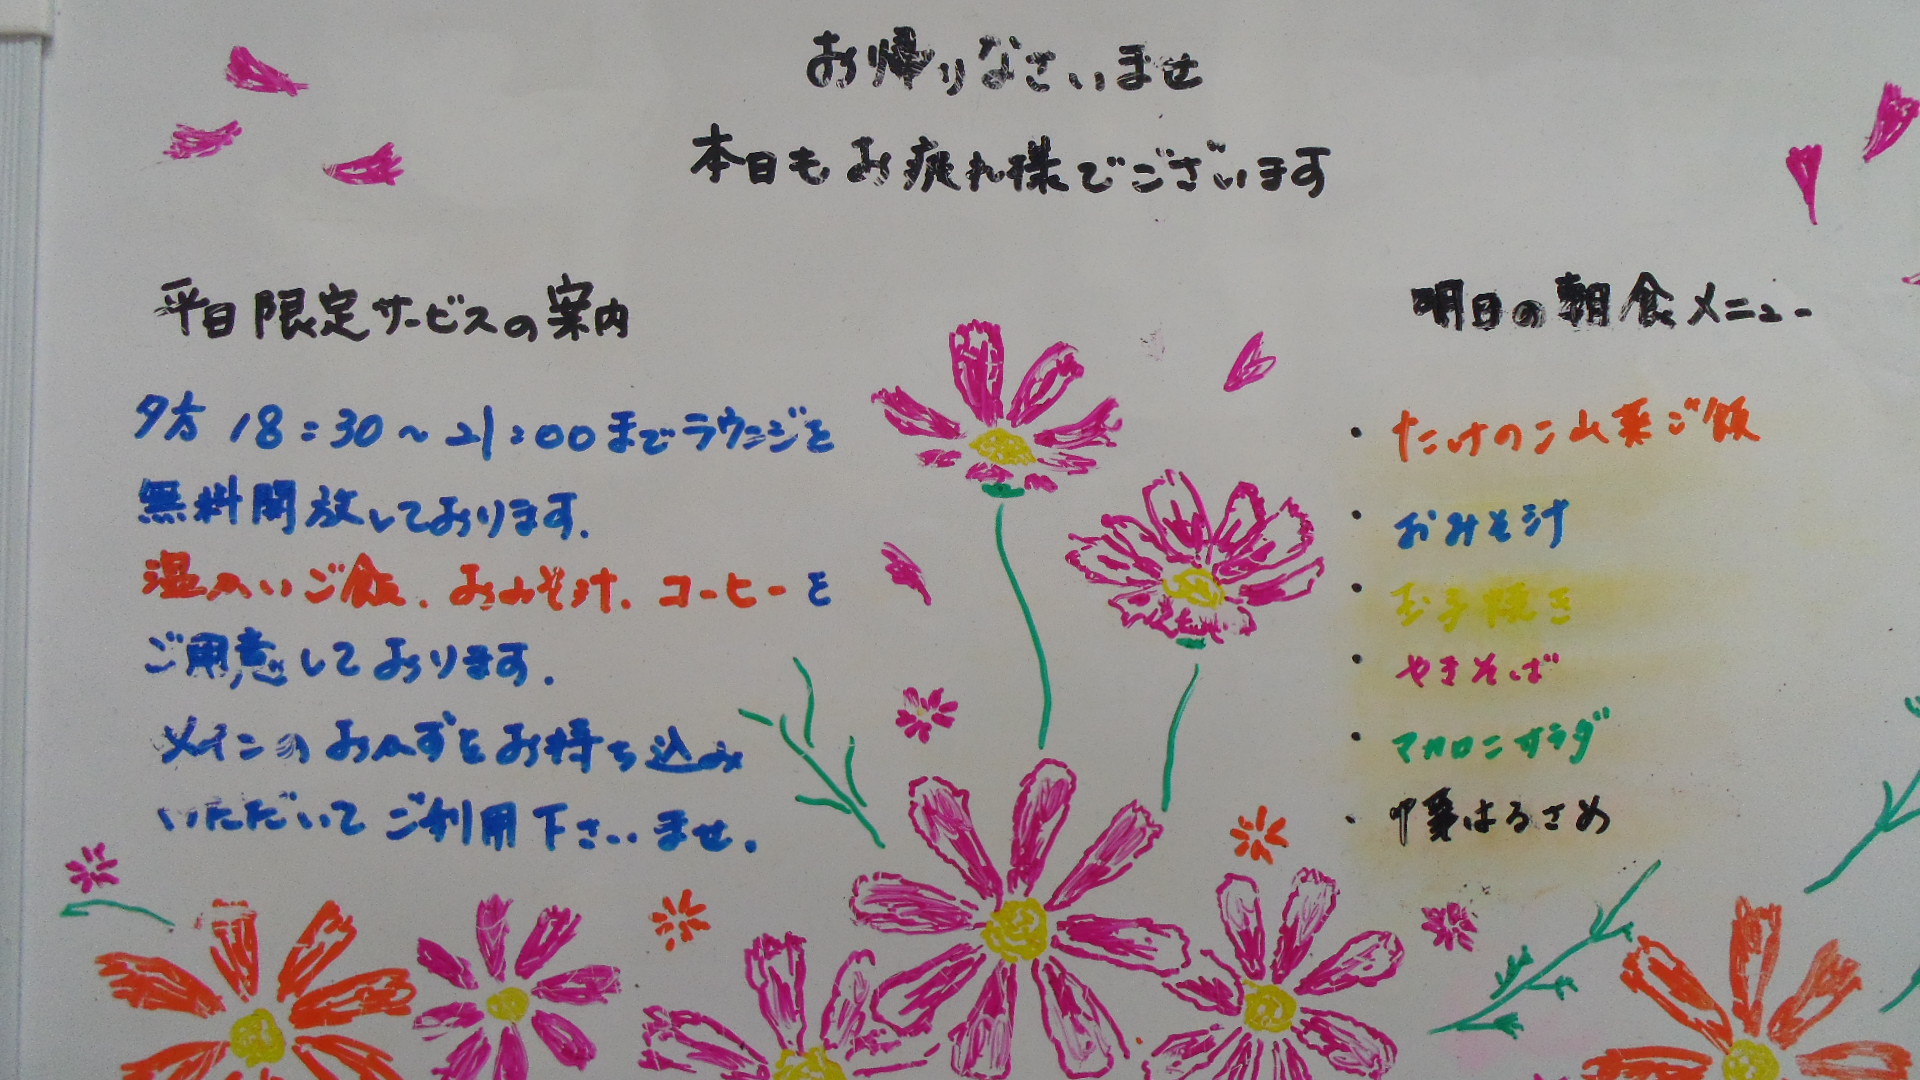 お帰りなさいませ
本日もお疲れ様でございます
平日限定サービスの案内
夕方 18:30～21:00までラウンジを
無料開放しております.
温かいご飯.おみそ汁.コーヒーを
ご用意しております.
メインのおかずをお持ち込み
いただいてご利用下さいませ.
明日の朝食メニュー
・たけのこ山菜ご飯
・おみそ汁
・玉子焼き
・やきそば
・マカロニサラダ
・中華はるさめ